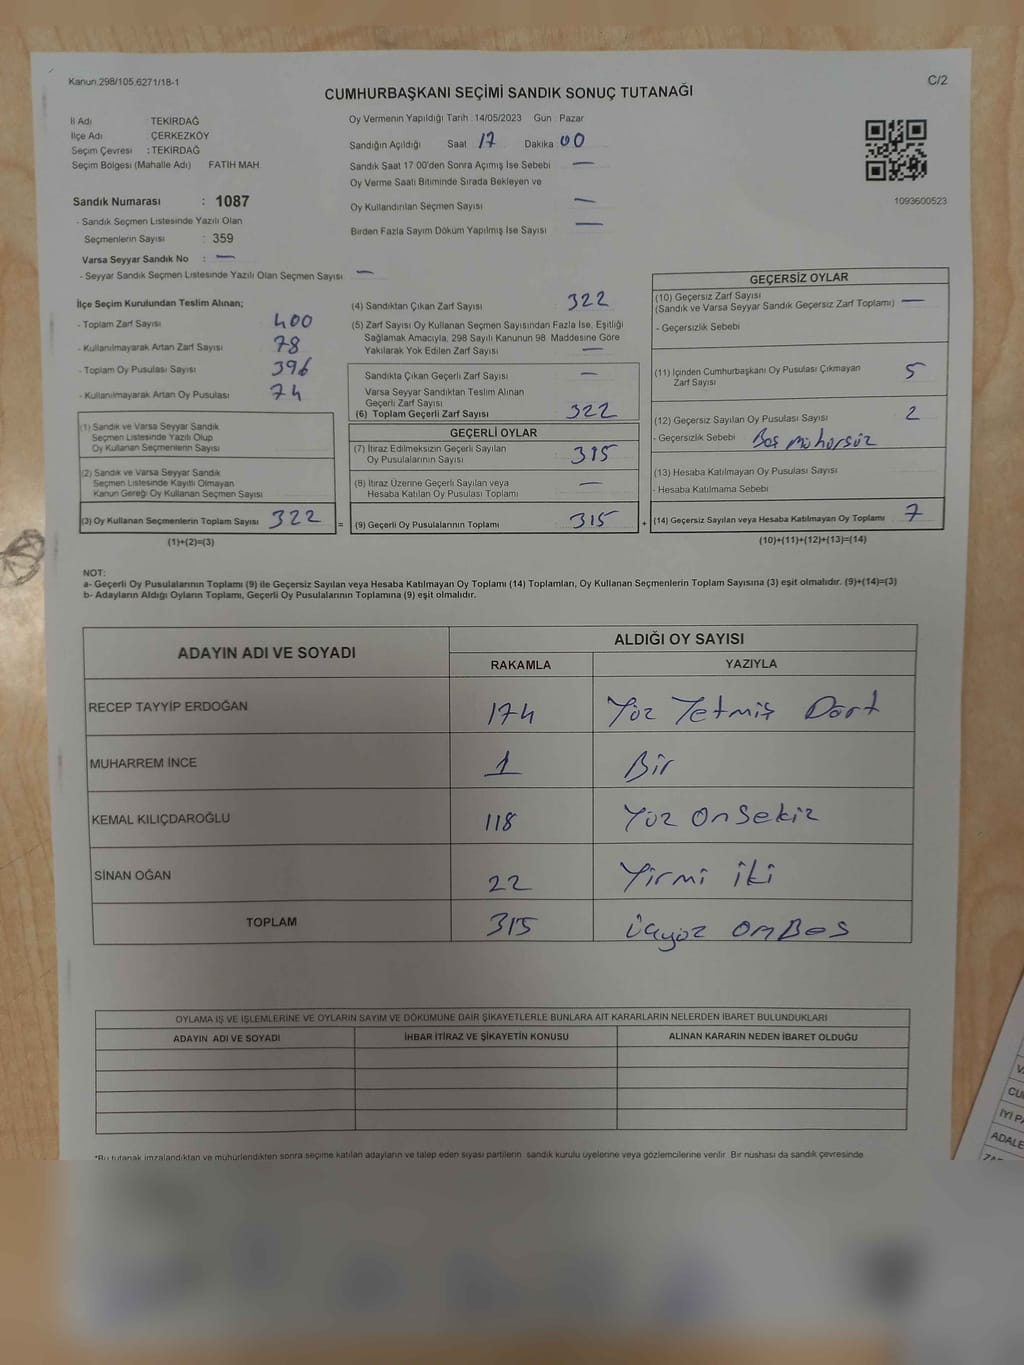 Kanun:298/105,6271/18-1
C/2
CUMHURBAŞKANI SEÇİMİ SANDIK SONUÇ TUTANAĞI
İl Adı TEKİRDAĞ
İlçe Adı : ÇERKEZKÖY
Seçim Çevresi : TEKİRDAĞ
Seçim Bölgesi (Mahalle Adı) FATİH MAH.
Oy Vermenin Yapıldığı Tarih : 14/05/2023 Gün : Pazar
Sandığın Açıldığı Saat 17 Dakika 00
Sandık Saat 17:00'den Sonra Açımış İse Sebebi —
Oy Verme Saati Bitiminde Sırada Bekleyen ve
Oy Kullandırılan Seçmen Sayısı —
Birden Fazla Sayım Döküm Yapılmış İse Sayısı —
1093600523
Sandık Numarası : 1087
- Sandık Seçmen Listesinde Yazılı Olan
Seçmenlerin Sayısı : 359
Varsa Seyyar Sandık No : —
- Seyyar Sandık Seçmen Listesinde Yazılı Olan Seçmen Sayısı —
İlçe Seçim Kurulundan Teslim Alınan;
- Toplam Zarf Sayısı 400
- Kullanılmayarak Artan Zarf Sayısı 78
- Toplam Oy Pusulası Sayısı 396
- Kullanılmayarak Artan Oy Pusulası 74
(1) Sandık ve Varsa Seyyar Sandık
Seçmen Listesinde Yazılı Olup
Oy Kullanan Seçmenlerin Sayısı
(2) Sandık ve Varsa Seyyar Sandık
Seçmen Listesinde Kayıtlı Olmayan
Kanun Gereği Oy Kullanan Seçmen Sayısı
(3) Oy Kullanan Seçmenlerin Toplam Sayısı 322
(1)+(2)=(3)
(4) Sandıktan Çıkan Zarf Sayısı 322
(5) Zarf Sayısı Oy Kullanan Seçmen Sayısından Fazla İse, Eşitliği
Sağlamak Amacıyla, 298 Sayılı Kanunun 98. Maddesine Göre
Yakılarak Yok Edilen Zarf Sayısı —
Sandıkta Çıkan Geçerli Zarf Sayısı —
Varsa Seyyar Sandıktan Teslim Alınan
Geçerli Zarf Sayısı
(6) Toplam Geçerli Zarf Sayısı 322
GEÇERLİ OYLAR
(7) İtiraz Edilmeksizin Geçerli Sayılan
Oy Pusulalarının Sayısı 315
(8) İtiraz Üzerine Geçerli Sayılan veya
Hesaba Katılan Oy Pusulası Toplamı —
= (9) Geçerli Oy Pusulalarının Toplamı 315 +
GEÇERSİZ OYLAR
(10) Geçersiz Zarf Sayısı
(Sandık ve Varsa Seyyar Sandık Geçersiz Zarf Toplamı) —
- Geçersizlik Sebebi
(11) İçinden Cumhurbaşkanı Oy Pusulası Çıkmayan
Zarf Sayısı 5
(12) Geçersiz Sayılan Oy Pusulası Sayısı 2
- Geçersizlik Sebebi Boş Mühürsüz
(13) Hesaba Katılmayan Oy Pusulası Sayısı
- Hesaba Katılmama Sebebi
(14) Geçersiz Sayılan veya Hesaba Katılmayan Oy Toplamı 7
(10)+(11)+(12)+(13)=(14)
NOT:
a- Geçerli Oy Pusulalarının Toplamı (9) ile Geçersiz Sayılan veya Hesaba Katılmayan Oy Toplamı (14) Toplamları, Oy Kullanan Seçmenlerin Toplam Sayısına (3) eşit olmalıdır. (9)+(14)=(3)
b- Adayların Aldığı Oyların Toplamı, Geçerli Oy Pusulalarının Toplamına (9) eşit olmalıdır.
ADAYIN ADI VE SOYADI ALDIĞI OY SAYISI
RAKAMLA YAZIYLA
RECEP TAYYİP ERDOĞAN 174 Yüz Yetmiş Dört
MUHARREM İNCE 1 Bir
KEMAL KILIÇDAROĞLU 118 Yüz Onsekiz
SİNAN OĞAN 22 Yirmi iki
TOPLAM 315 üçyüz onBeş
OYLAMA İŞ VE İŞLEMLERİNE VE OYLARIN SAYIM VE DÖKÜMÜNE DAİR ŞİKAYETLERLE BUNLARA AİT KARARLARIN NELERDEN İBARET BULUNDUKLARI
ADAYIN ADI VE SOYADI İHBAR İTİRAZ VE ŞİKAYETİN KONUSU ALINAN KARARIN NEDEN İBARET OLDUĞU
*Bu tutanak imzalandıktan ve mühürlendikten sonra seçime katılan adayların ve talep eden siyasi partilerin sandık kurulu üyelerine veya gözlemcilerine verilir. Bir nüshası da sandık çevresinde
CU
İYİ PA
ADALE